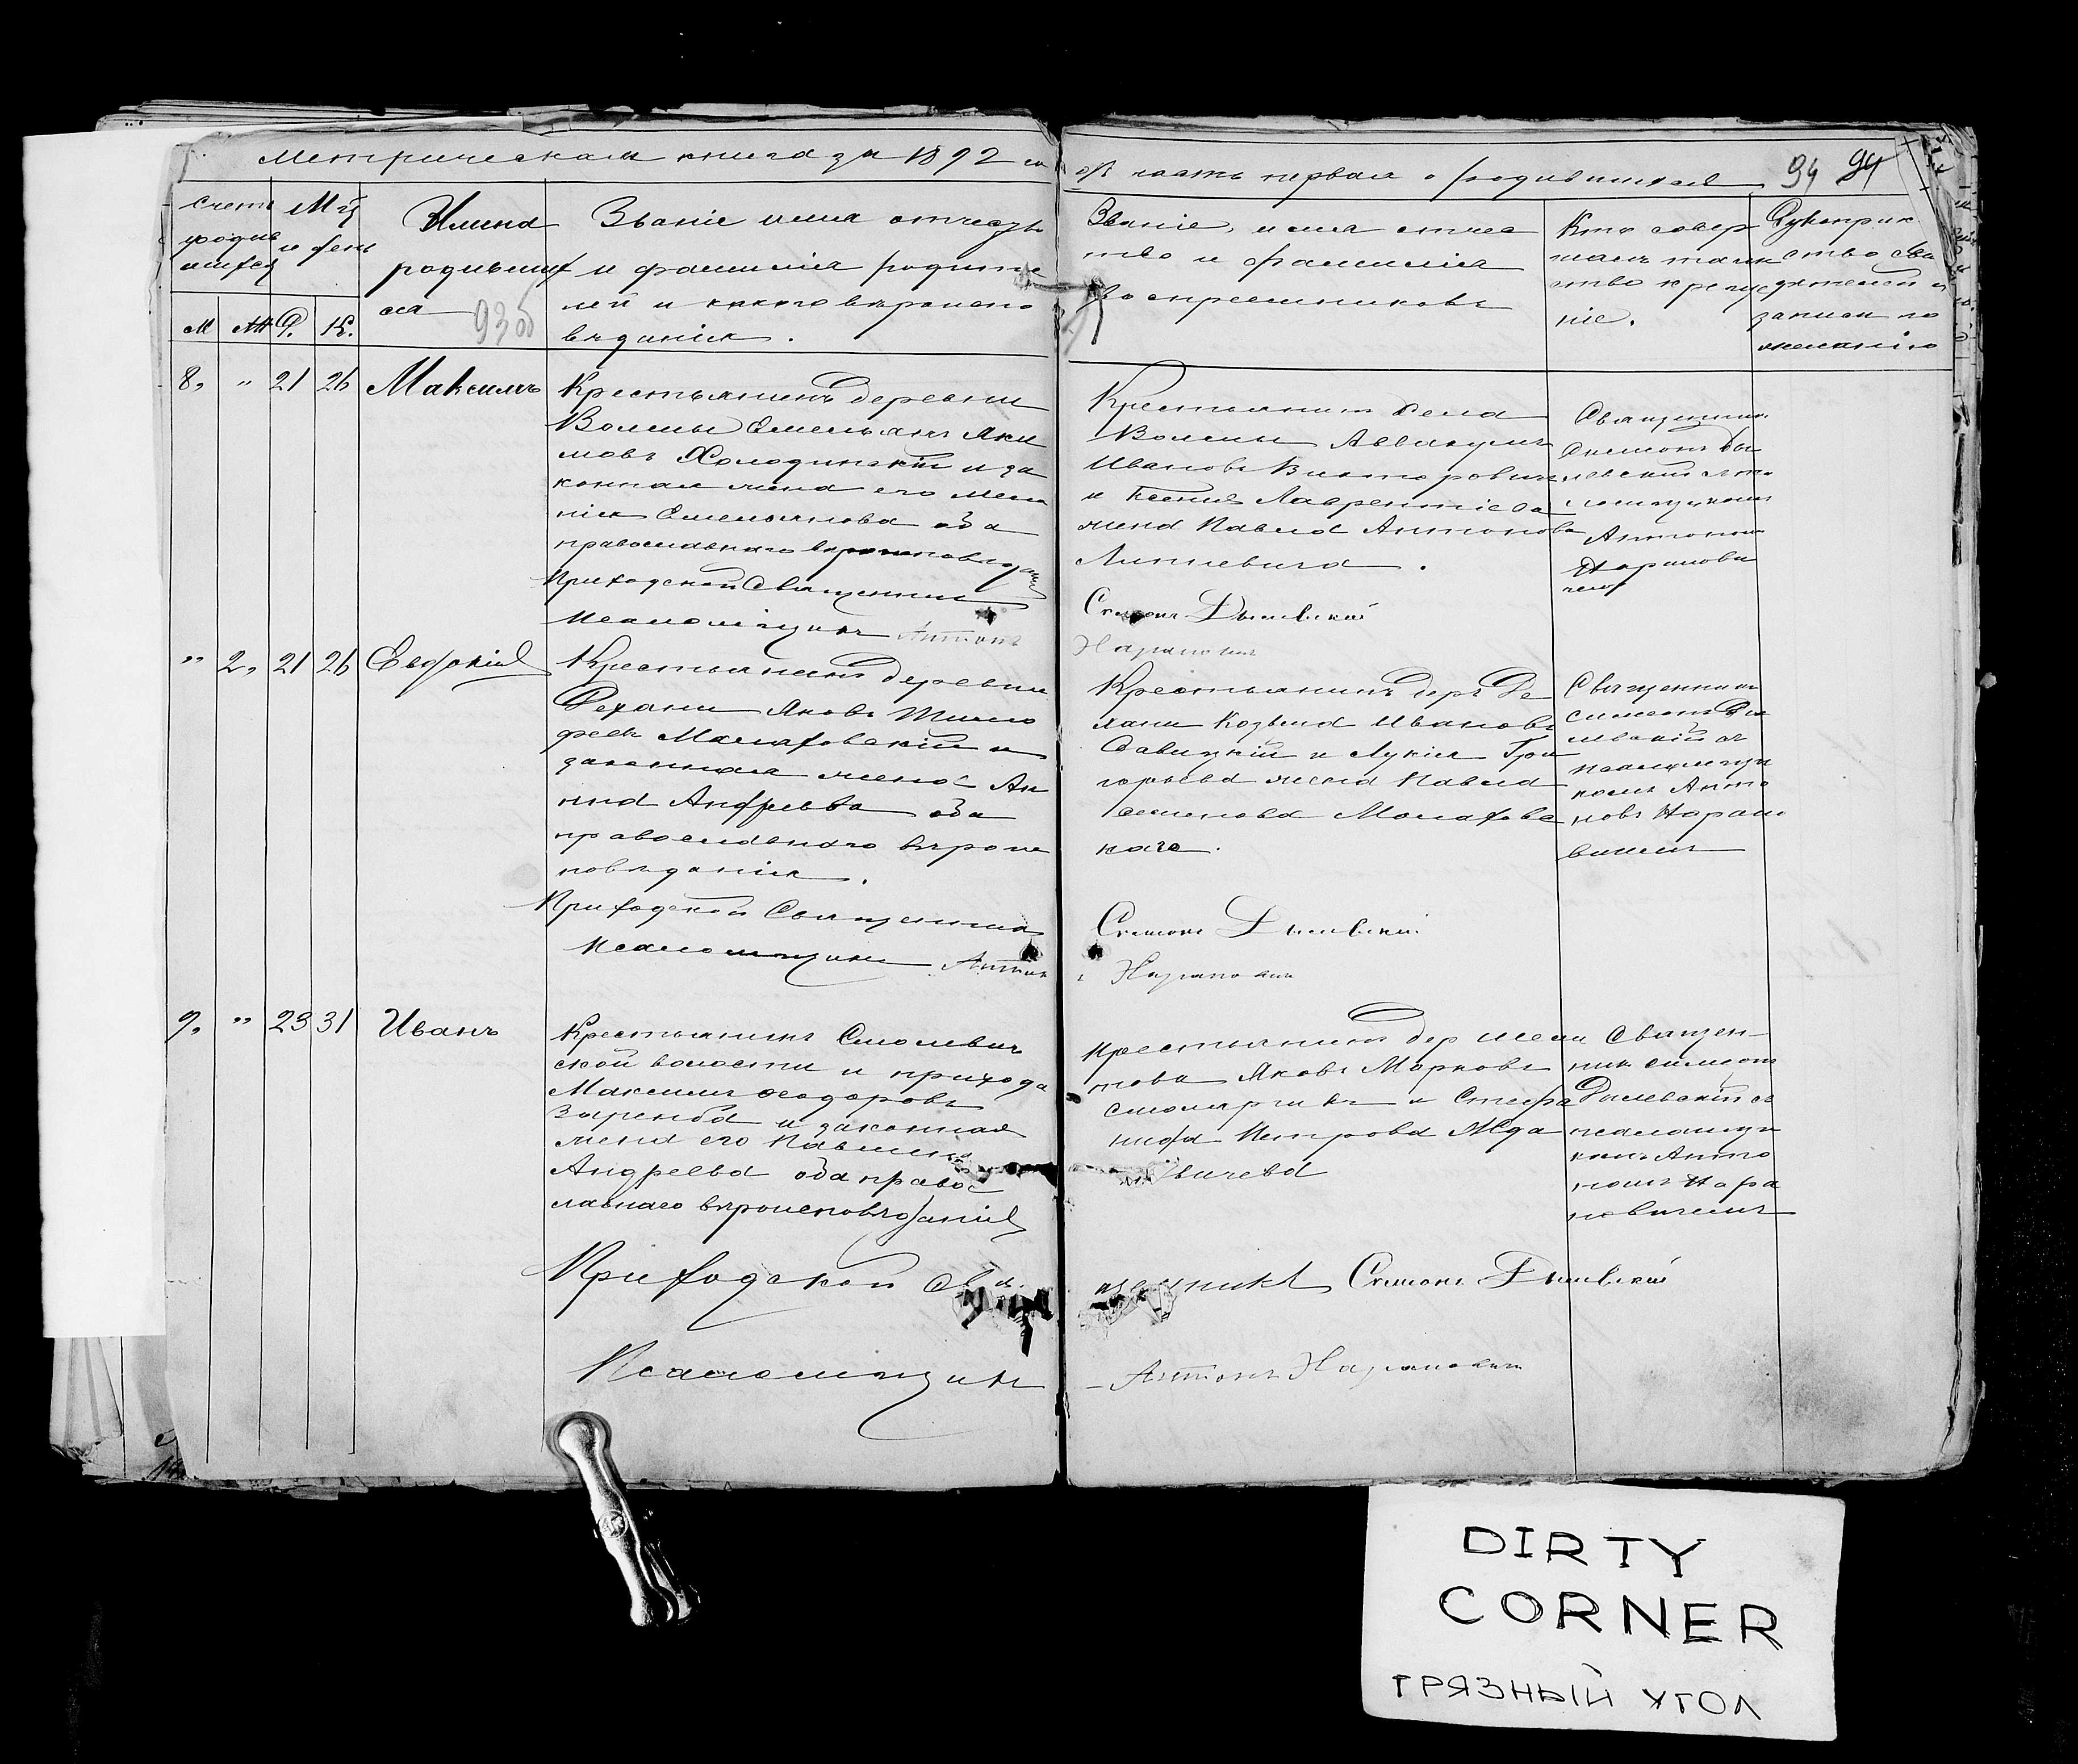 Метрическая книга за 1892 го
дъ часть первая о родившихся 94 94
Счетъ
родив
шихся
М Ж
Мѣ
и день
Р. К.
Имена
родивших
ся 93об
Званіе имя отчеств
и фамилія родите
лей и какого вѣроиспо
вѣданія.
Званіе, имя отчес
тво и фамилія
Воспреемниковъ
Кто совер
шалъ таин
ство креще
ніе.
Рукоприк
ство сви
дѣтелей и
записи по
желанію
8, " 21 26 Максимъ
Крестьянинъ деревни
Волмы Емельянъ Яки
мовъ Холодинскій и за
конная жена его Мела
нія Емельянова оба
православнаго вѣроисповѣданія
Приходской Священник
Псаломщикъ Антонъ
Крестьянинъ села
Волмы Аввакумъ
Ивановъ Викторовичъ
и Ксенія Лаврентіева
жена Павла Антонова
Линкевича.
Симонъ Дылевскій
Наранович
Священник
Симонъ Ды
левскій съ пса
ломщикомъ
Антономъ
Наранови
чемъ
" 2, 21 26 Евдокія
Крестьянинъ деревни
Дехани Яковъ Тимо
феевъ Малаховскій и
законная жена Ан
на Андреева оба
православнаго вѣроис
повѣданія.
Приходской Священник
Псаломщикъ Антон
Крестьянинъ дерев Де
хани Козьма Ивановъ
Савицкій и Лукія Гри
горьева жена Павла
Семенова Малаховс
каго.
Симонъ Дылевскій
Наранович
Священник
Симонъ Ды
левскій съ
псаломщи
комъ Анто
номъ Нарано
вичемъ
9, " 23 31 Иванъ
Крестьянинъ Смолевич
ской волости и прихода
Максимъ Феодоровъ
Заремба и законная
жена его Павлина
Андреева оба правос
лавнаго вѣроисповѣданія
Крестьянинъ дер
Яковъ Марковъ
и Стефа
нида Петрова Жда
вичева
Священ
никъ Симонъ
Дылевскій съ
псаломщи
комъ Анто
номъ Нара
новичемъ
Приходской Свя
щенникъ Симонъ Дылевскій
Псаломщикъ
Антонъ Наранович
DIRTY
CORNER
ГРЯЗНЫЙ УГОЛ